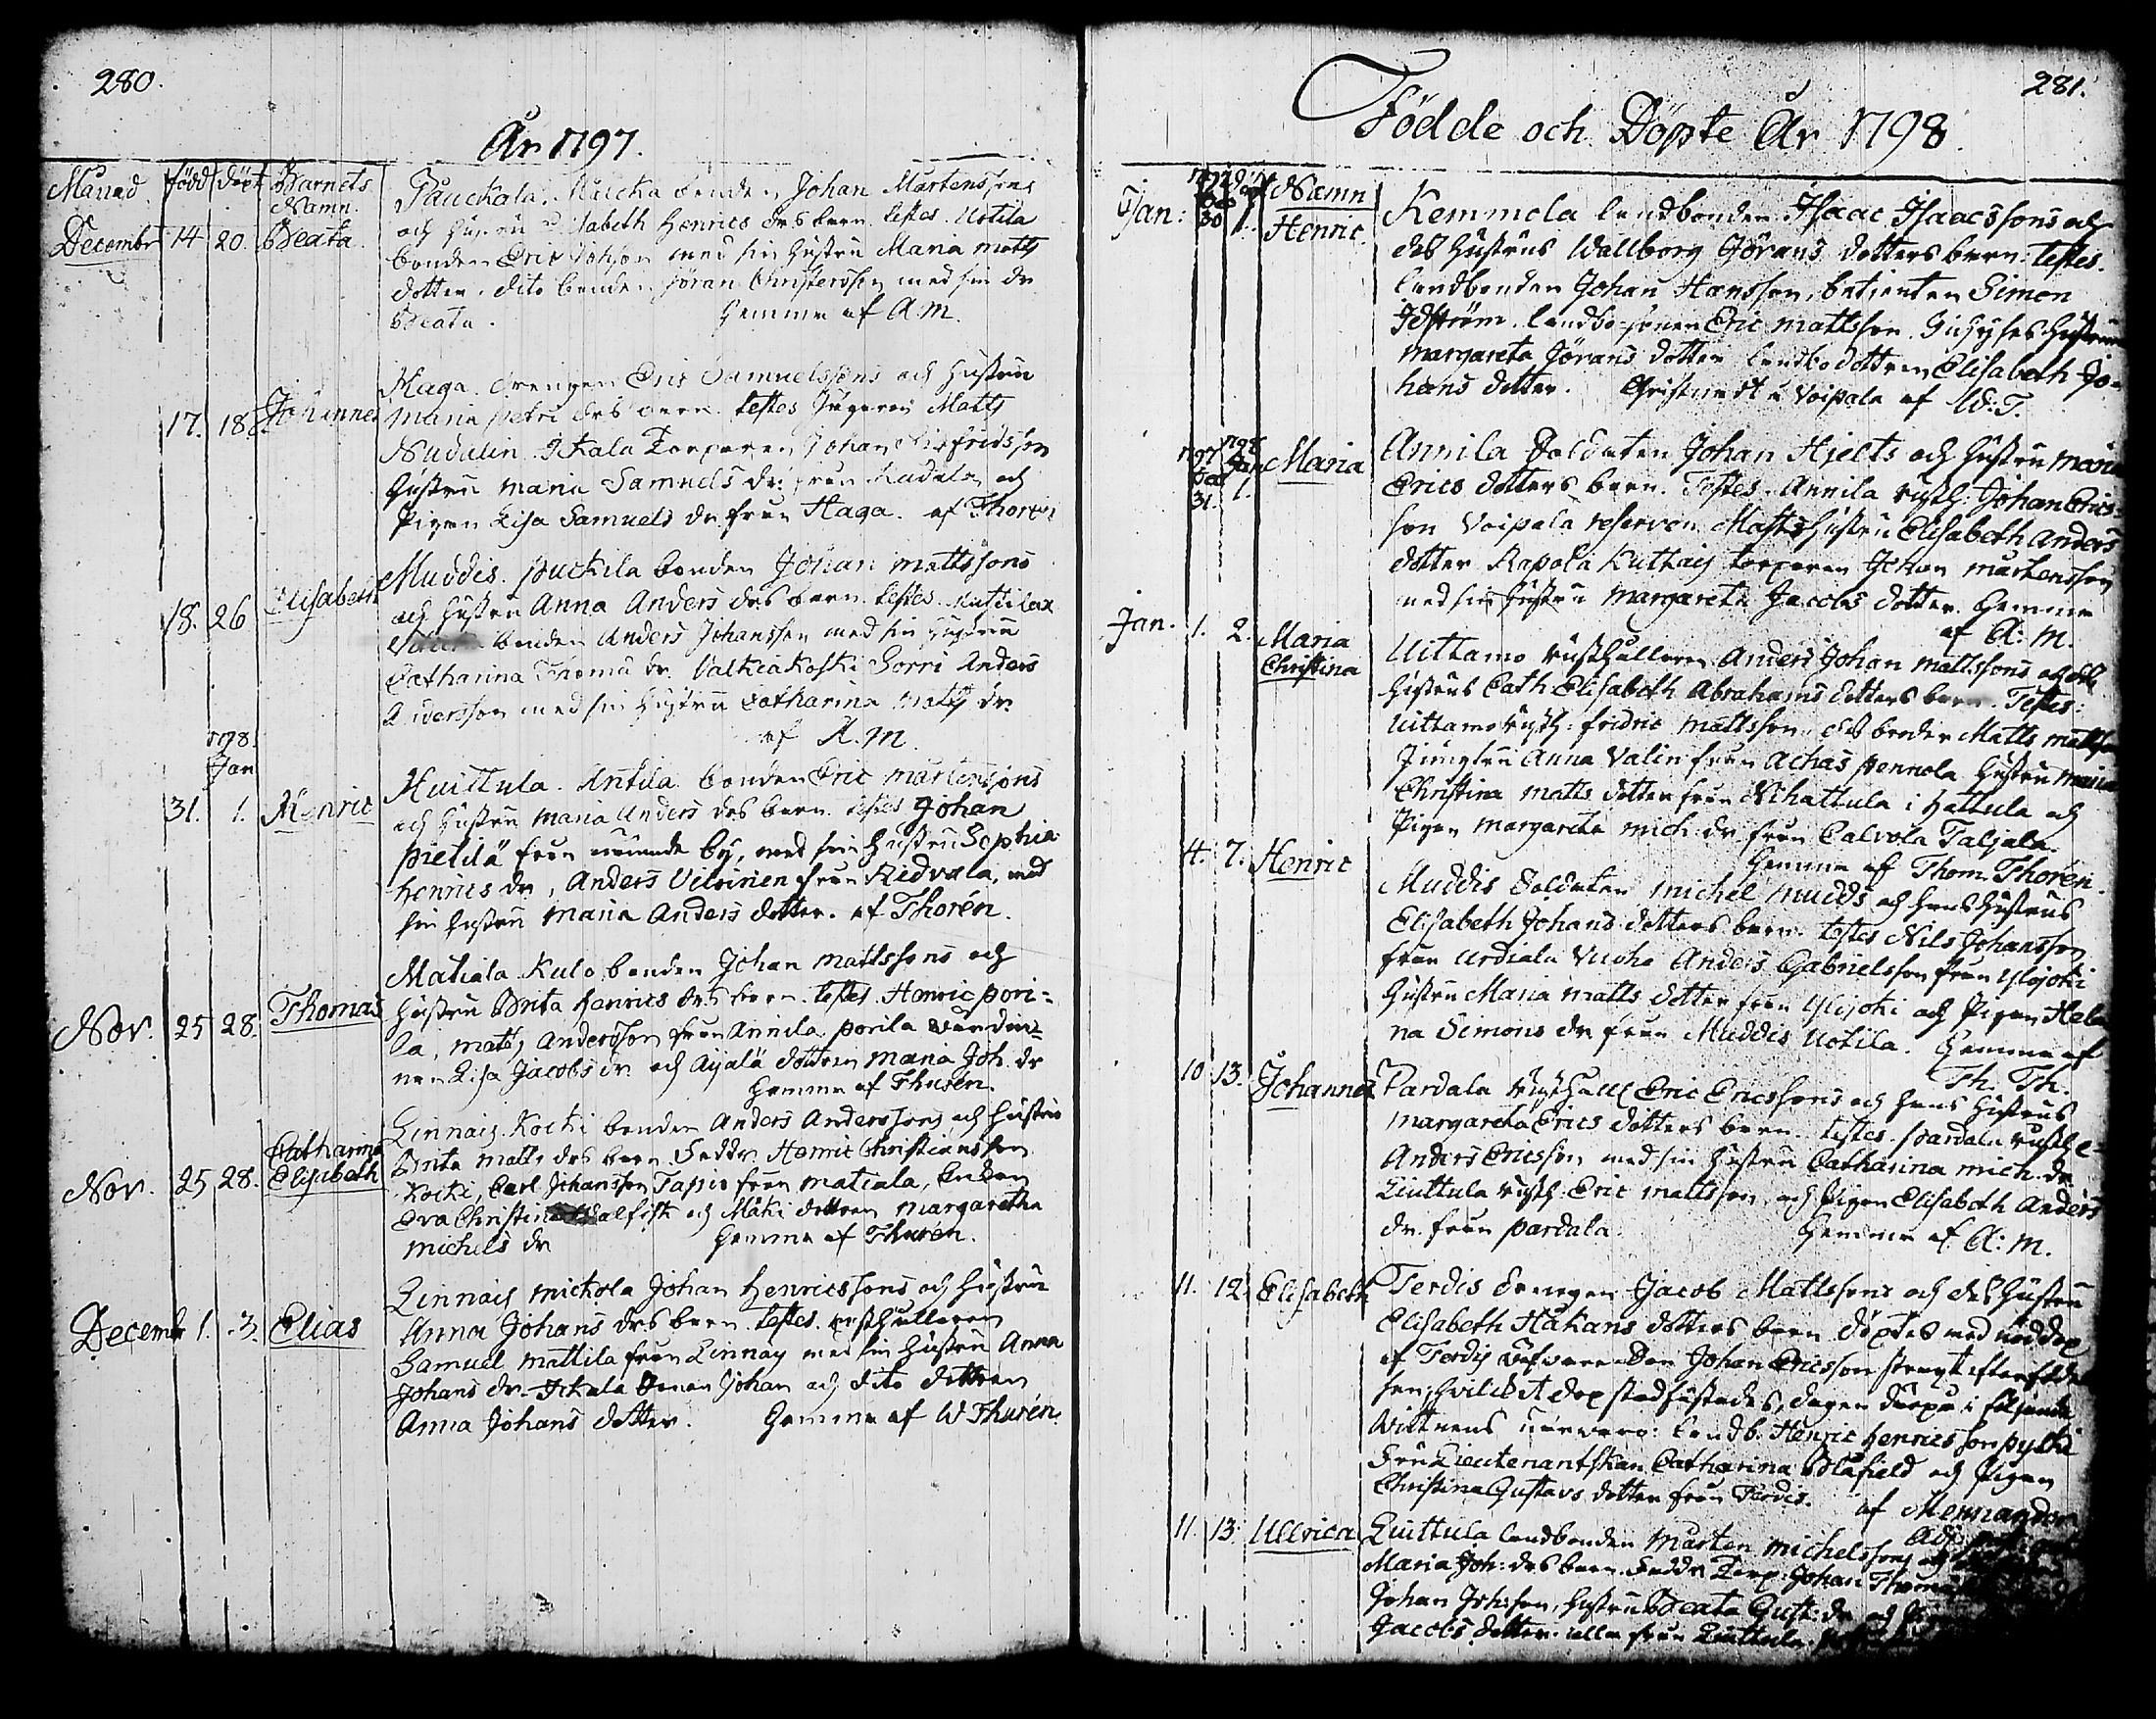 280.
År 1797.
Månad. född döpt Barnets Namn.
Decembr 14 20. Beata
Pauckola. bonden Johan Mårtenssons
och hustru Elisabeth Henrics drs barn. testes. Uotila
bonden Eric Johsson med sin hustru Maria Matts
dotter. dito bonden Jöran Christersson med sin dr
Beata. hemma af A.M.
17. 18. Johannes
Haga. drengen Eric Samuelssons och hustru
Maria Petri drs barn. testes Jägaren Matts
Nudalin Ickala Torparen Johan Sigfridsson
hustru Maria Samuels dr: från och
Pigan Lisa Samuels dr från Haga. af Thorén
18. 26 Elisabeth
Muddis. Puckila bonden Johan Mattssons
och hustru Anna Anders drs barn. testes.
bonden Anders Johansson med sin hustru
Catharina Thomæ dr. Valkiakoski Sorri Anders
Andersson med sin hustru Catharina Matts dr.
af A.M.
1798.
Jan
31. 1. Henric
Huittula. Antila bonden Eric Mårtenssons
och hustru Maria Anders drs barn. testes Johan
Pietilä från nämnde by, med sin hustru Sophia
Henrics dr, Anders Vilvinen från Ridvala, med
sin hustru Maria Anders dotter. af Thorén.
Nov. 25 28. Thomas
Matiala Kulo bonden Johan Mattssons och
hustru Brita Henrics drs barn. testes. Henric Pori=
la, Matts Andersson från Annila, Porila värdin=
nan Lisa Jacobs dr och Ajala dottren Maria Joh. dr
hemma af Thurén.
Nov. 25 28. Catharina Elisabeth
Linnais. Kocki bonden Anders Anderssons och hustru
Brita Matts drs barn. Faddr Henric Christiansson
Kocki, Carl Johansson Tapio från Matiala, Enkan
Eva Christina och Mäki dottren Margaretha
Michels dr hemma af Thurén.
Decembr 1. 3. Elias
Linnais Mickola Johan Henricssons och hustru
Anna Johans drs barn. testes. rusthållaren
Samuel Mattila från Linnais med sin hustru Anna
Johans dr. Ickala sonen Johan och dito dottren
Anna Johans dotter. hemma af W Thurén.
281.
Födde och Döpte År 1798
1797 Dec Döpt Namn
Jan: 30 1. Henric.
Kemmola landbonden Isaac Isaacssons och
des hustrus Wallborg Jörans dotters barn. testes.
landbonden Johan Hansson, betjenten Simon
Idström. landbo sonen Eric Mattsson. Inhyses hustrun
Margareta Jörans dotter landbo dottren Elisabeth Jo=
hans dotter. Christnadt i Voipala af W: T.
1797 Dec 31. 1798 Jan 1. Maria
Annila Soldaten Johan Hjelts och hustru Maria
Erics dotters barn. Testes. Annila rusth: Johan Erics=
son Voipala reserven Matts hustru Elisabeth Anders
dotter Rapola Kuttais torparen Johan Mårtensson
med sin hustru Margareta Jacobs dotter. hemma
af A: M.
Jan. 1. 2. Maria Christina
Uittamo rusthållaren Anders Johan Mattssons och des
hustrus Cath. Elisabeth Abrahams dotters barn. Testes:
Uittamo rusth: Fredric Mattsson, des broder Matts Mattsson
Jungfru Anna Valin från Achas Pennola hustru Maria
Christina Matts dotter från Nihattula i Hattula och
Pigan Margareta Mich: dr från Calvola Taljala.
hemma af Thom. Thorén.
4. 7. Henric
Muddis Soldaten Michel Mudds och hans hustrus
Elisabeth Johans dotters barn. testes Nils Johansson
från Ardiala Vuoho Anders Gabrielsson från Ylijoki
hustru Maria Matts dotter från Ylijoki och Pigan Hele
na Simons dr från Muddis Uotila. hemma af
Th. Th.
10 13. Johannes
Pardala rusthåll: Eric Ericssons och hans hustrus
Margareta Erics dotters barn. testes. Pardala rusth:
Anders Ericsson med sin hustru Catharina Mich. dr
Liuttula rusth: Eric Mattsson, och Pigan Elisabeth Anders
dr. från Pardala. hemma af A: M.
11. 12. Elisabeth
Terdis drengen Jacob Mattssons och des hustru
Elisabeth Håkans dotters barn döptes med nöddop
af Terdis Johan Ericsson strax efter födel
sen, hvilcket dop stadfästades, dagen därpå i följande
wittnens närwaro: landb. Henric Henricsson Pythä
Fru Lieutenantskan Catharina Blåfield och Pigan
Christina Gustavs dotter från Terdis. af Mennander
11. 13. Ullrica
Liuttula landbonden Mårten Michelssons och
Maria Joh: drs barn. Faddr Torp: Johan
Johan Johsson, hustru Beata Gust: dr och
Jacobs dotter. alla från Liuttula.